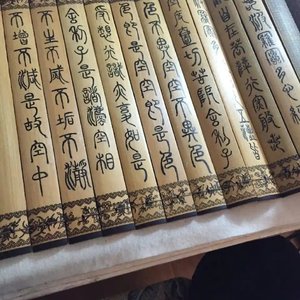 羅蜜多
自在菩薩行深般若
五蘊皆
度一切苦厄舍利子
色不異空空不異色
色即是空空即是色
受想行識亦復如是
舍利子是諸法空相
不生不滅不垢不淨
不增不減是故空中